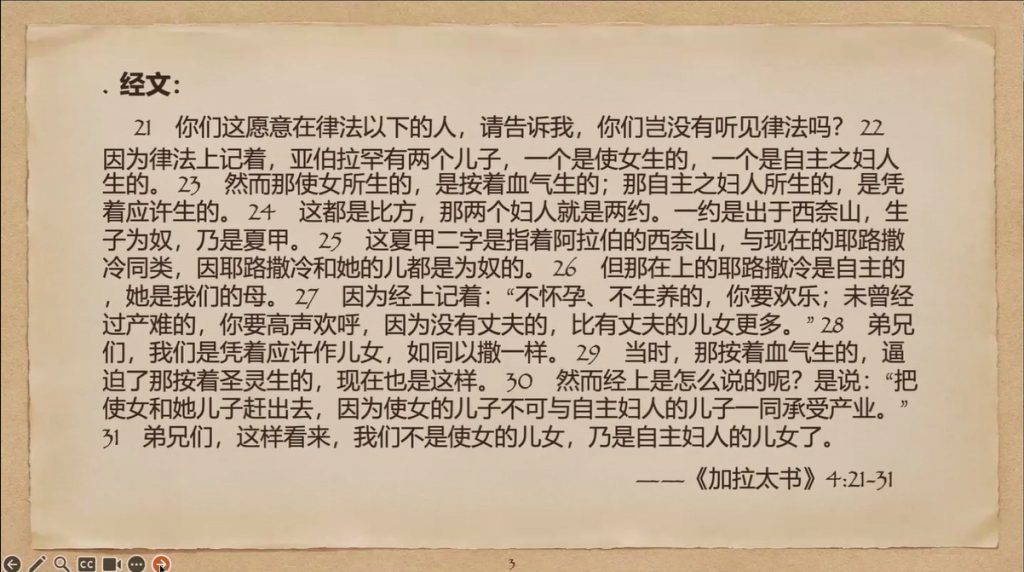 . 经文：
21 你们这愿意在律法以下的人，请告诉我，你们岂没有听见律法吗？ 22
因为律法上记着，亚伯拉罕有两个儿子，一个是使女生的，一个是自主之妇人
生的。 23 然而那使女所生的，是按着血气生的；那自主之妇人所生的，是凭
着应许生的。 24 这都是比方，那两个妇人就是两约。一约是出于西奈山，生
子为奴，乃是夏甲。 25 这夏甲二字是指着阿拉伯的西奈山，与现在的耶路撒
冷同类，因耶路撒冷和她的儿都是为奴的。 26 但那在上的耶路撒冷是自主的
，她是我们的母。 27 因为经上记着：“不怀孕、不生养的，你要欢乐；未曾经
过产难的，你要高声欢呼，因为没有丈夫的，比有丈夫的儿女更多。” 28 弟兄
们，我们是凭着应许作儿女，如同以撒一样。 29 当时，那按着血气生的，逼
迫了那按着圣灵生的，现在也是这样。 30 然而经上是怎么说的呢？是说：“把
使女和她儿子赶出去，因为使女的儿子不可与自主妇人的儿子一同承受产业。”
31 弟兄们，这样看来，我们不是使女的儿女，乃是自主妇人的儿女了。
——《加拉太书》4:21-31
CC
3